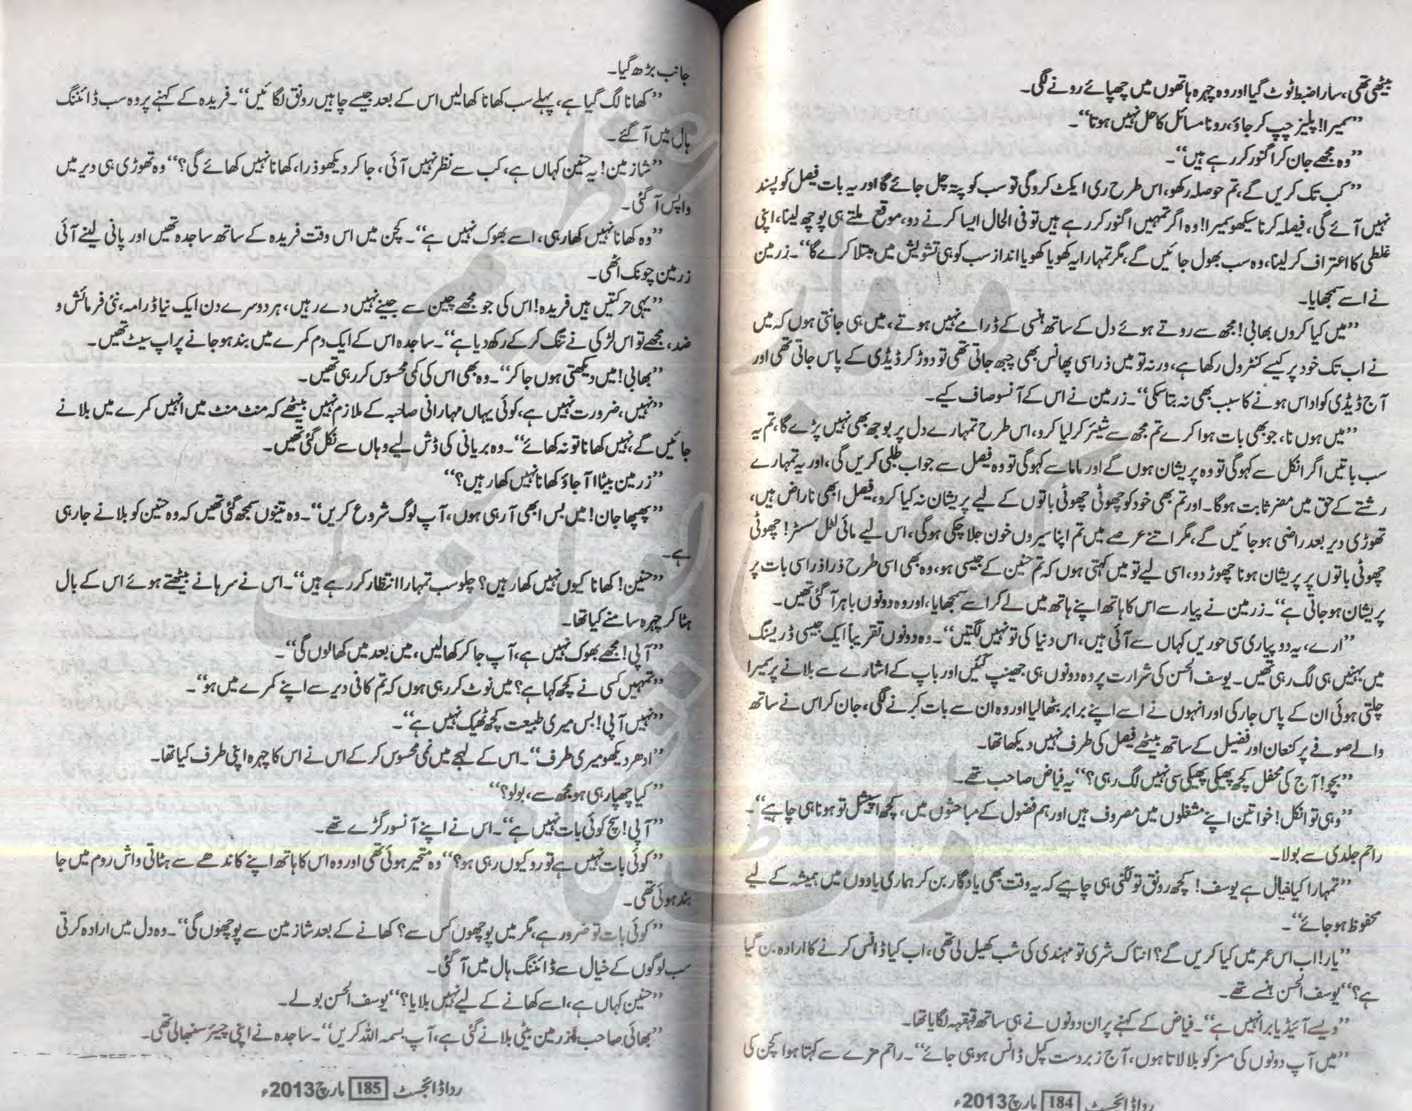 بیٹھی تھی، سارا ضبط ٹوٹ گیا اور وہ چہرہ ہاتھوں میں چھپائے رونے لگی۔
’’سمیرا! پلیز چپ کر جاؤ، رونا مسائل کا حل نہیں ہوتا‘‘۔
’’وہ مجھے جان کر اگنور کر رہے ہیں‘‘۔
’’کب تک کریں گے، تم حوصلہ رکھو، اس طرح ری ایکٹ کرو گی تو سب کو پتہ چل جائے گا اور یہ بات فیصل کو پسند
نہیں آئے گی، فیصلہ کرنا سیکھو سمیرا! وہ اگر تمہیں اگنور کر رہے ہیں تو فی الحال ایسا کرنے دو، موقع ملتے ہی پوچھ لینا، اپنی
غلطی کا اعتراف کر لینا، وہ سب بھول جائیں گے، مگر تمہارا یہ کھویا کھویا انداز سب کو ہی تشویش میں مبتلا کرے گا‘‘۔ زرمین
نے اسے سمجھایا۔
’’میں کیا کروں بھابی! مجھ سے روتے ہوئے دل کے ساتھ ہنسی کے ڈرامے نہیں ہوتے، میں ہی جانتی ہوں کہ میں
نے اب تک خود پر کیسے کنٹرول رکھا ہے، ورنہ تو میں ذرا سی پھانس بھی چبھ جاتی تھی تو دوڑ کر ڈیڈی کے پاس جاتی تھی اور
آج ڈیڈی کو اداس ہونے کا سبب بھی نہ بتا سکی‘‘۔ زرمین نے اس کے آنسو صاف کیے۔
’’میں ہوں نا، جو بھی بات ہوا کرے تم مجھ سے شیئر کر لیا کرو، اس طرح تمہارے دل پر بوجھ بھی نہیں پڑے گا، تم یہ
سب باتیں اگر انکل سے کہو گی تو وہ پریشان ہوں گے اور ماما سے کہو گی تو وہ فیصل سے جواب طلبی کریں گی، اور یہ تمہارے
رشتے کے حق میں مضر ثابت ہوگا۔ اور تم بھی خود کو چھوٹی چھوٹی باتوں کے لیے پریشان نہ کیا کرو، فیصل ابھی ناراض ہیں،
تھوڑی دیر بعد راضی ہو جائیں گے، مگر اتنے عرصے میں تم اپنا سیروں خون جلا چکی ہوگی، اس لیے مائی لٹل سسٹر! چھوٹی
چھوٹی باتوں پر پریشان ہونا چھوڑ دو، اسی لیے تو میں کہتی ہوں کہ تم حنین کے جیسی ہو، وہ بھی اسی طرح ذرا ذرا سی بات پر
پریشان ہو جاتی ہے‘‘۔ زرمین نے پیار سے اس کا ہاتھ اپنے ہاتھ میں لے کر اسے سمجھایا، اور وہ دونوں باہر آ گئی تھیں۔
’’ارے، یہ دو پیاری سی حوریں کہاں سے آئی ہیں، اس دنیا کی تو نہیں لگتیں‘‘۔ وہ دونوں تقریباً ایک جیسی ڈریسنگ
میں بہنیں ہی لگ رہی تھیں۔ یوسف الحسن کی شرارت پر وہ دونوں ہی جھینپ گئیں اور باپ کے اشارے سے بلانے پر سمیرا
چلتی ہوئی ان کے پاس جا رکی اور انہوں نے اسے اپنے برابر بٹھا لیا اور وہ ان سے بات کرنے لگی، جان کر اس نے ساتھ
والے صوفے پر کنعان اور فضیل کے ساتھ بیٹھے فیصل کی طرف نہیں دیکھا تھا۔
’’بچو! آج کی محفل کچھ پھیکی پھیکی سی نہیں لگ رہی؟‘‘ یہ فیاض صاحب تھے۔
’’وہی تو انکل! خواتین اپنے مشغلوں میں مصروف ہیں اور ہم فضول کے مباحثوں میں، کچھ اسپیشل تو ہونا ہی چاہیے‘‘۔
راحم جلدی سے بولا۔
’’تمہارا کیا خیال ہے یوسف! کچھ رونق تو لگنی ہی چاہیے کہ یہ وقت بھی یادگار بن کر ہماری یادوں میں ہمیشہ کے لیے
محفوظ ہو جائے‘‘۔
’’یار! اب اس عمر میں کیا کریں گے؟ انتاکشری تو مہندی کی شب کھیل لی تھی، اب کیا ڈانس کرنے کا ارادہ بن گیا
ہے؟‘‘ یوسف الحسن ہنسے تھے۔
’’ویسے آئیڈیا برا نہیں ہے‘‘۔ فیاض کے کہنے پر ان دونوں نے ہی ساتھ قہقہہ لگایا تھا۔
’’میں آپ دونوں کی مسز کو بلا لاتا ہوں، آج زبردست کپل ڈانس ہو ہی جائے‘‘۔ راحم مزے سے کہتا ہوا کچن کی
ردا ڈائجسٹ 184 مارچ 2013ء
جانب بڑھ گیا۔
’’کھانا لگ گیا ہے، پہلے سب کھانا کھا لیں اس کے بعد جیسے چاہیں رونق لگائیں‘‘۔ فریدہ کے کہنے پر وہ سب ڈائننگ
ہال میں آ گئے۔
’’شازمین! یہ حنین کہاں ہے، کب سے نظر نہیں آئی، جا کر دیکھو ذرا، کھانا نہیں کھائے گی؟‘‘ وہ تھوڑی ہی دیر میں
واپس آ گئی۔
’’وہ کھانا نہیں کھا رہی، اسے بھوک نہیں ہے‘‘۔ کچن میں اس وقت فریدہ کے ساتھ ساجدہ تھیں اور پانی لینے آئی
زرمین چونک اٹھی۔
’’یہی حرکتیں ہیں فریدہ! اس کی جو مجھے چین سے جینے نہیں دے رہیں، ہر دوسرے دن ایک نیا ڈرامہ، نئی فرمائش و
ضد، مجھے تو اس لڑکی نے تنگ کر کے رکھ دیا ہے‘‘۔ ساجدہ اس کے ایک دم کمرے میں بند ہو جانے پر اپ سیٹ تھیں۔
’’بھابی! میں دیکھتی ہوں جا کر‘‘۔ وہ بھی اس کی کمی محسوس کر رہی تھیں۔
’’نہیں، ضرورت نہیں ہے، کوئی یہاں مہارانی صاحبہ کے ملازم نہیں بیٹھے کہ منٹ منٹ میں انہیں کمرے میں بلانے
جائیں گے، نہیں کھانا تو نہ کھائے‘‘۔ وہ بریانی کی ڈش لیے وہاں سے نکل گئی تھیں۔
’’زرمین بیٹا! آ جاؤ کھانا نہیں کھا رہیں؟‘‘
’’پھپھا جان! میں بس ابھی آ رہی ہوں، آپ لوگ شروع کریں‘‘۔ وہ تینوں سمجھ گئی تھیں کہ وہ حنین کو بلانے جا رہی
ہے۔
’’حنین! کھانا کیوں نہیں کھا رہیں؟ چلو سب تمہارا انتظار کر رہے ہیں‘‘۔ اس نے سرہانے بیٹھتے ہوئے اس کے بال
ہٹا کر چہرہ سامنے کیا تھا۔
’’آپی! مجھے بھوک نہیں ہے، آپ جا کر کھا لیں، میں بعد میں کھا لوں گی‘‘۔
’’تمہیں کسی نے کچھ کہا ہے؟ میں نوٹ کر رہی ہوں کہ تم کافی دیر سے اپنے کمرے میں ہو‘‘۔
’’نہیں آپی! بس میری طبیعت کچھ ٹھیک نہیں ہے‘‘۔
’’ادھر دیکھو میری طرف‘‘۔ اس کے لہجے میں نمی محسوس کر کے اس نے اس کا چہرہ اپنی طرف کیا تھا۔
’’کیا چھپا رہی ہو مجھ سے، بولو؟‘‘
’’آپی! سچ کوئی بات نہیں ہے‘‘۔ اس نے اپنے آنسو رگڑے تھے۔
’’کوئی بات نہیں ہے تو رو کیوں رہی ہو؟‘‘ وہ متحیر ہوئی تھی اور وہ اس کا ہاتھ اپنے کاندھے سے ہٹاتی واش روم میں جا
بند ہوئی تھی۔
’’کوئی بات تو ضرور ہے، مگر میں پوچھوں کس سے؟ کھانے کے بعد شازمین سے پوچھوں گی‘‘۔ وہ دل میں ارادہ کرتی
سب لوگوں کے خیال سے ڈائننگ ہال میں آ گئی۔
’’حنین کہاں ہے، اسے کھانے کے لیے نہیں بلایا؟‘‘ یوسف الحسن بولے۔
’’بھائی صاحب! زرمین بیٹی بلانے گئی ہے، آپ بسم اللہ کریں‘‘۔ ساجدہ نے اپنی چیئر سنبھالی تھی۔
ردا ڈائجسٹ 185 مارچ 2013ء